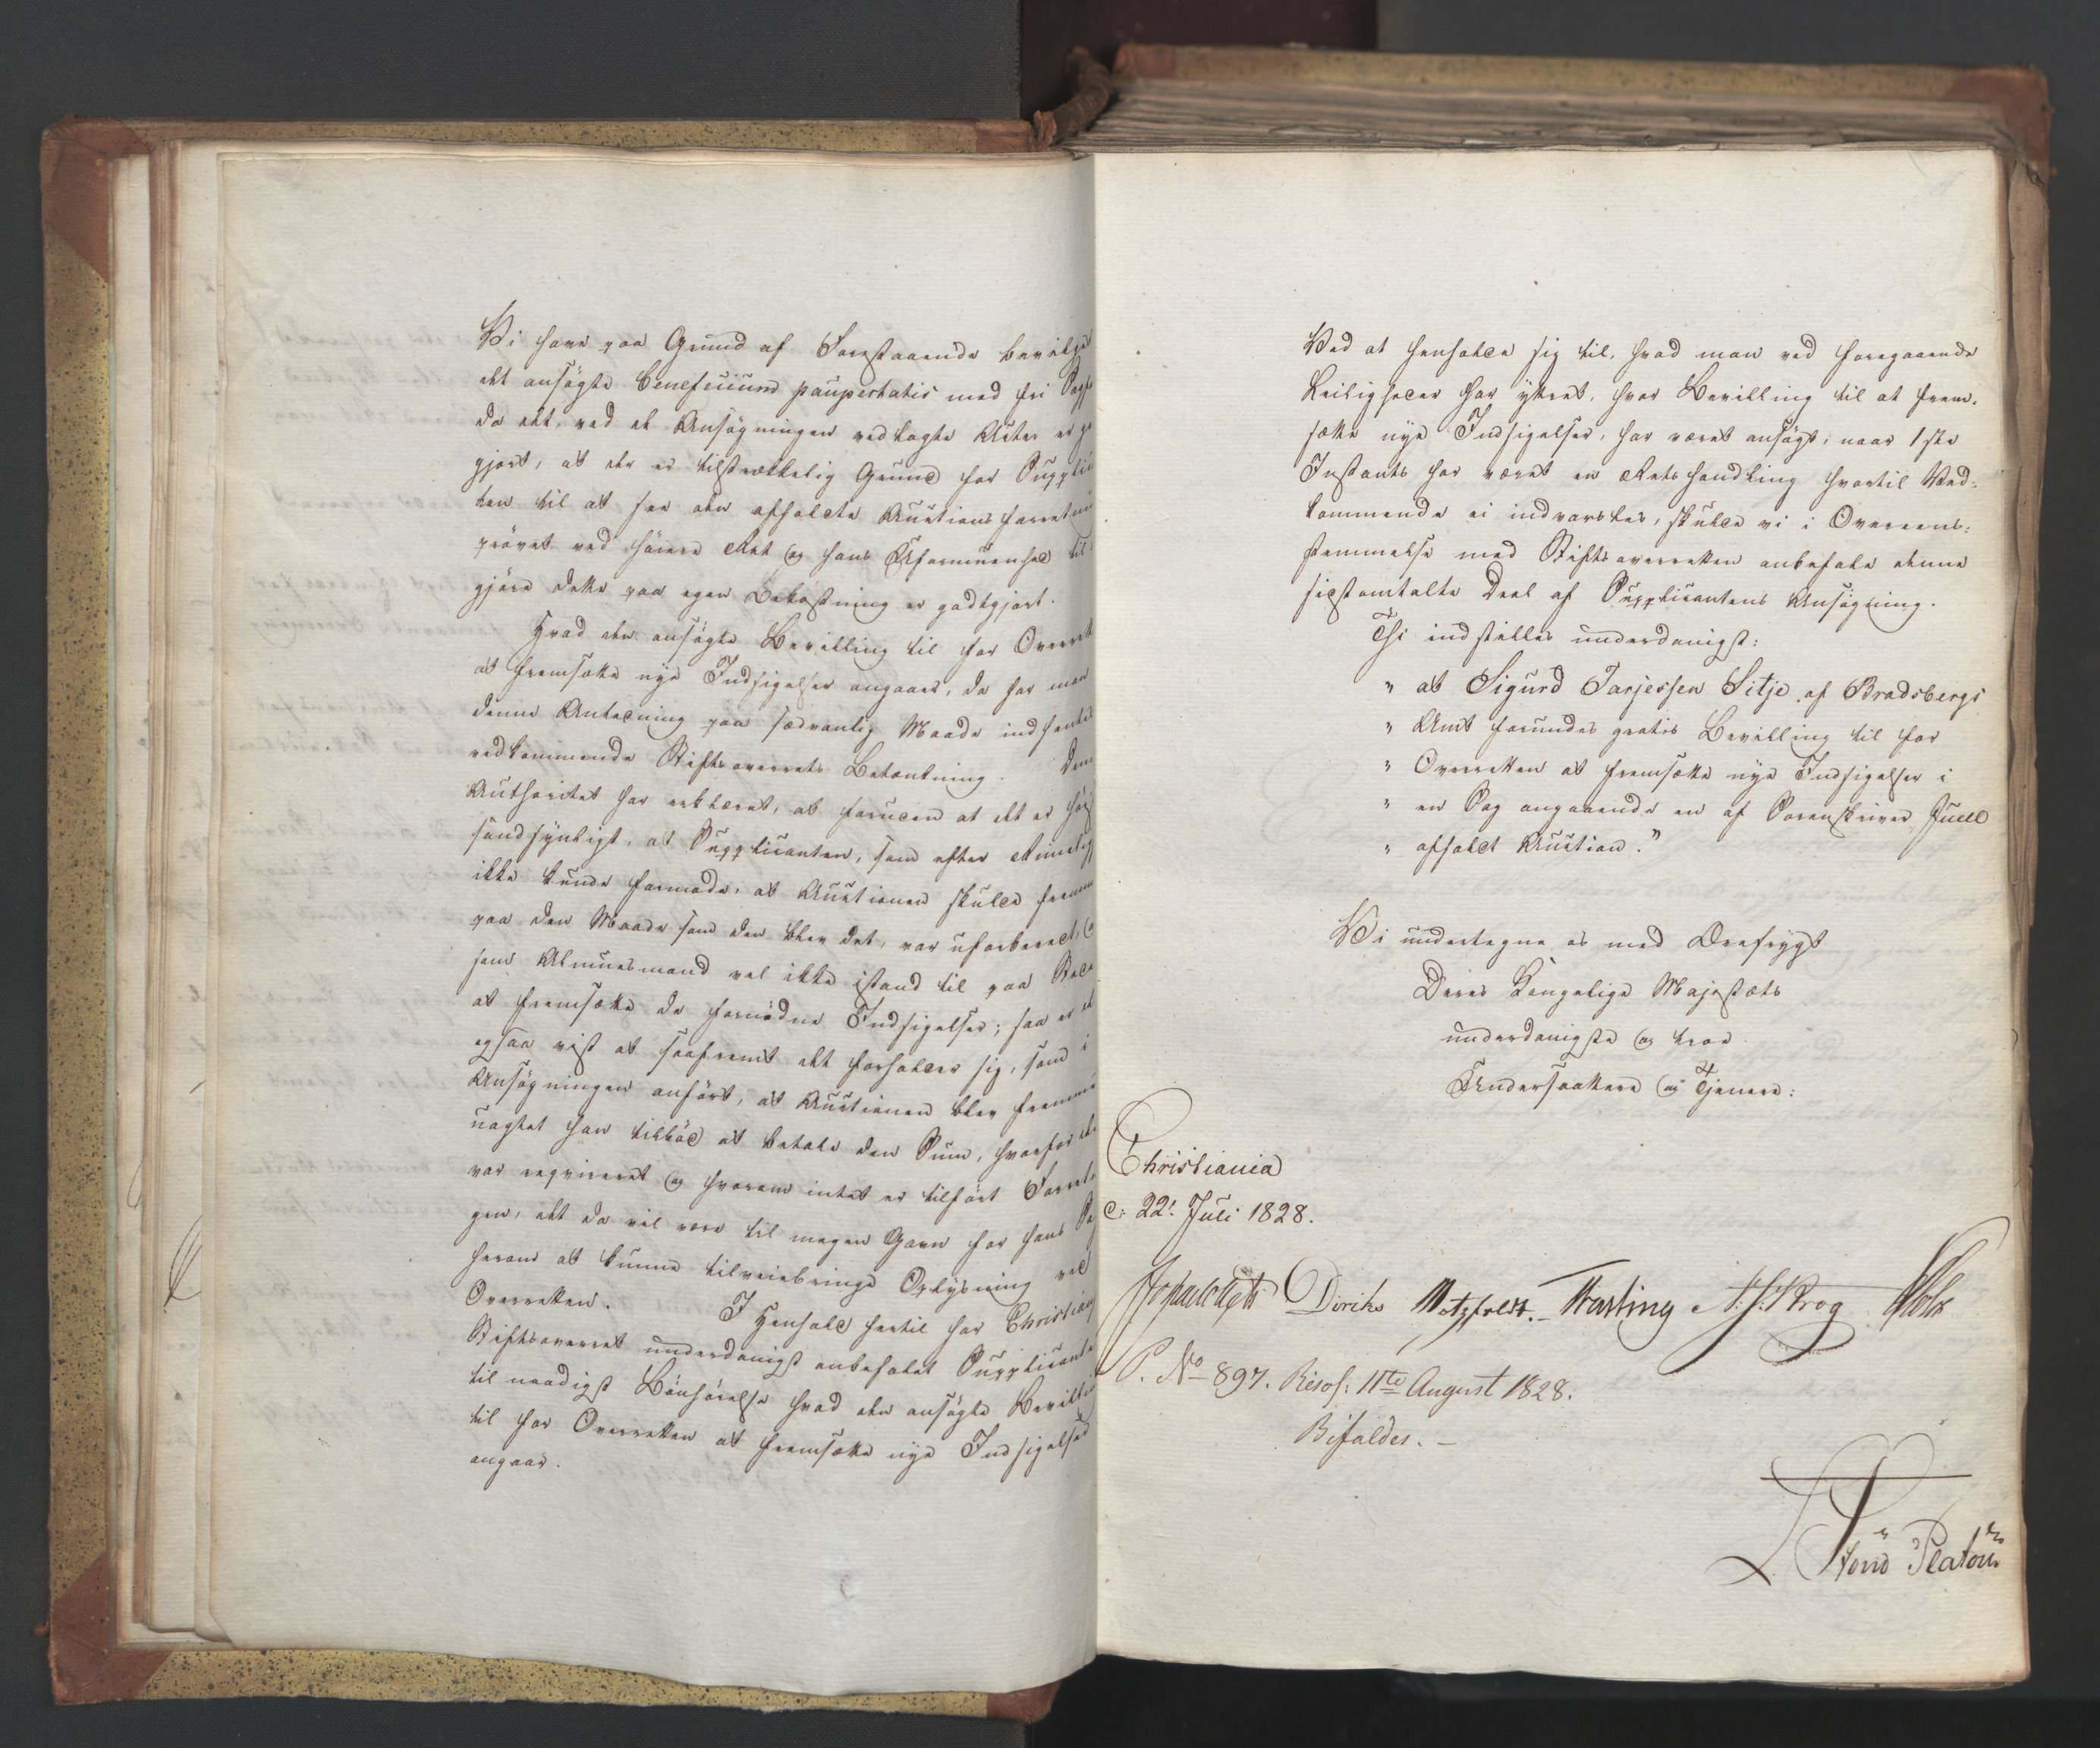 Vi have paa Grund af Forestaaende bevilget
det ansøgte beneficium paupertatis med fri
da det, ved de Ansøgningen vedlagte Acter er
gjort, at der er tilstrækkelig Grund for
ten til at see den afholdte Auctionsforretni
prøvet ved høiere Ret og hans Uformuenhed til
gjøre dette paa egen Bekostning er godtgjort.
Hvad den ansøgte Bevilling til for Overret
at fremsætte nye Indsigelser angaaer, da har man
denne Anledning paa sædvanlig Maade indhentet
vedkommende Stiftsoverrets Betænkning. Denne
Authoritet har erklæret, at foruden at det er høist
sandsynligt, at Supplicanten, som efter Rimelig
ikke kunde formode, at Auctionen skulde fremme
paa den Maade som den blev det, var uforberedt, og
som Almuesmand vel ikke istand til paa Stede
at fremsætte de fornødne Indsigelser; saa er det
ogsaa vist at saafremt det forholder sig, som i
Ansøgningen anført, at Auctionen blev fremmet
uagtet han tilbød at betale den Sum, hvorfor den
var reqvireret og hvorom intet er tilført Forretni
gen, det da vil være til megen Gavn for hans Sag
herom at kunne tilveiebringe Oplysning ved
Overretten. I Henhold hertil har Christians
Stiftsoverret underdanigst anbefalet Supplicante
til naadigst Bønhørelse hvad den ansøgte Bevilli
til for Overretten at fremsætte nye Indsigelser
angaaer.
Ved at henholde sig til, hvad man ved foregaaende
Leiligheder har yttret, hvor Bevilling til at frem-
sætte nye Indsigelser, har været ansøgt, naar 1ste
Instants har været en Retshandling hvortil Ved-
kommende ei indvarsles, skulde vi i Overeens-
stemmelse med Stiftsoverretten anbefale denne
sidstomtalte Deel af Supplicantens Ansøgning.
Thi indstilles underdanigst:
" at Sigurd Tarjessen Sitje af Bradsbergs
" Amt forundes gratis Bevilling til for
" Overretten at fremsætte nye Indsigelser i
" en Sag angaaende en af Sorenskriver Juell
" afholdt Auction."
Vi undertegne os med Ærefrygt
Deres Kongelige Majestæts
underdanigste og troe
Undersaattere og Tjenere:
Christiania
d: 22! Juli 1828.
Diriks Motzfeldt. Krog Holst
P. No 897. Resol: 11te August 1828.
Bifaldes. —
Platou